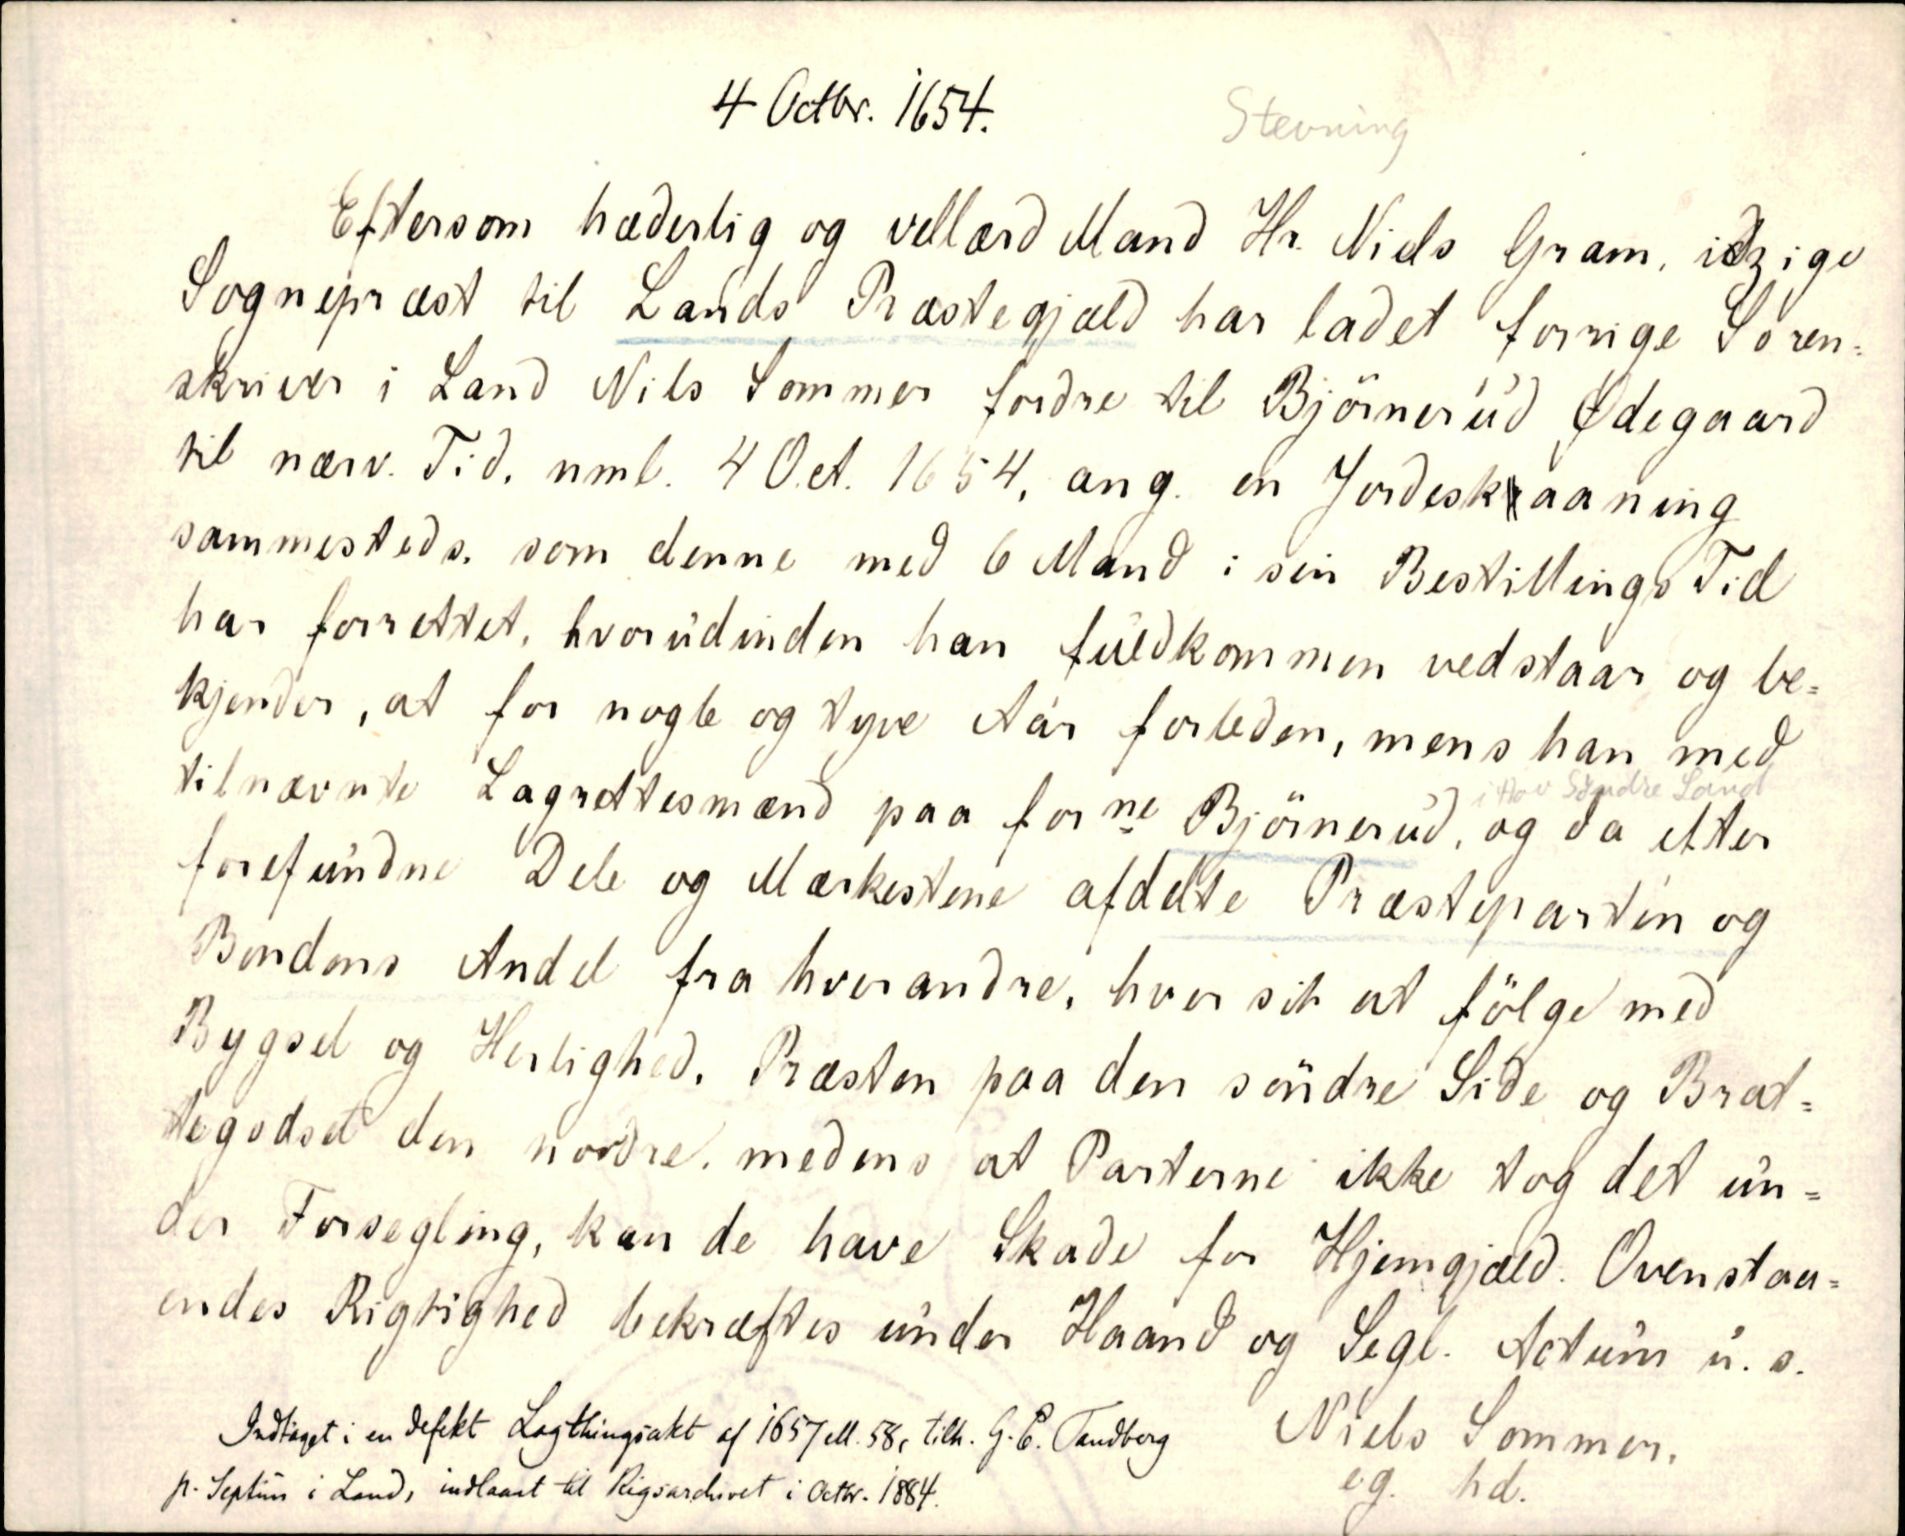 4 Octbr. 1654.
Stevning
Eftersom hæderlig og vellærd Mand Hr. Niels Gram, idzige
Sognepræst til Lands Præstegjæld har ladet forrige Soren=
skriver i Land Nils Sommer fordre til Björnerúd Ødegaard
til nærv. Tid, nml. 4 Oct. 1654, ang. en Jordeskaaning
sammesteds, som denne med 6 Mand i sin Bestillings Tid
har forrettet, hvorúdinden han fúldkommen vedstaar og be=
kjender, at for nogle og tyve Aar forleden, mens han med
i Hov Søndre Land
tilnævnte Lagrettesmænd paa forne Björnerúd, og da efter
forefúndne Dele og Mærkestene afdelte Præstepartin og
Bondens Andel fra hverandre, hver sit at fölge med
Bygsel og Herlighed, Præsten paa den söndre Side og Brat=
tegodset den nordre, medens at Parterne ikke tog det ún=
der Forsegling, kan de have Skade for Hjemgjæld. Ovenstaa=
endes Rigtighed bekræftes únder Haand og Segl. Actúm ú. s.
Niels Sommer,
eg. hd.
Indtaget i en defekt Lagthingsakt af 1657 ell. 58, tilh. G. E. Tandberg
p. Septún i Land, indlaant til Rigsarchivet i Octbr. 1884.